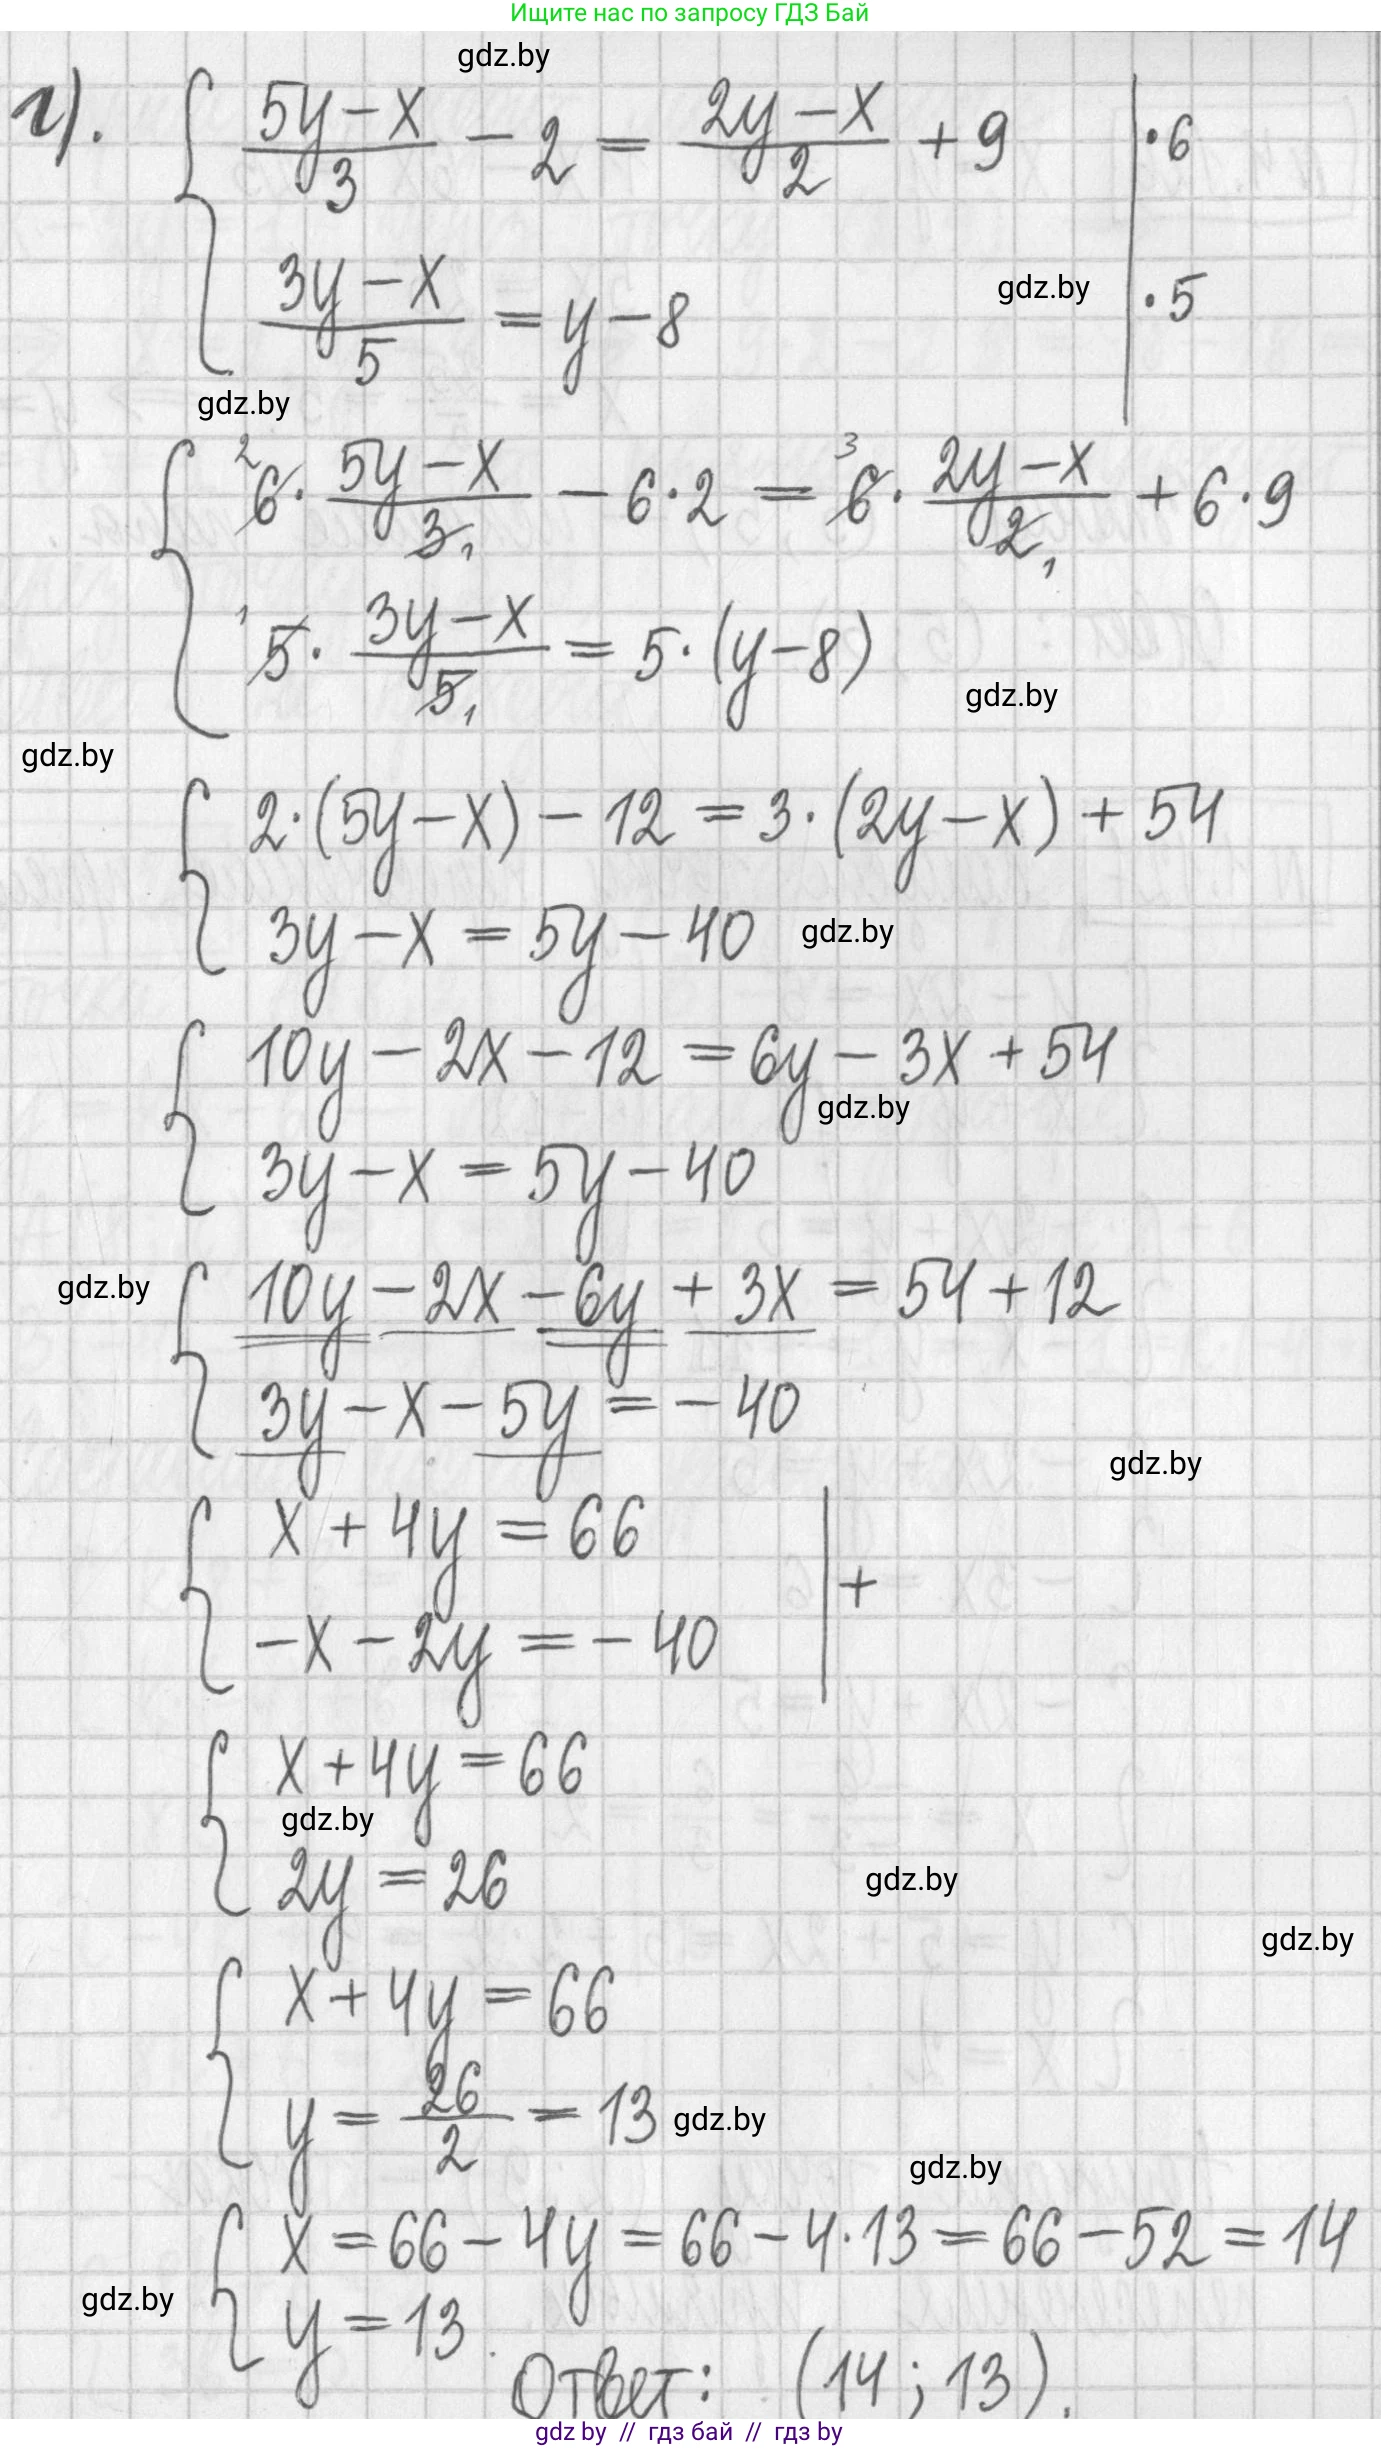 Ищите нас по запросу ГДЗ Бай
gdz.by
г). { (5y-x)/3 - 2 = (2y-x)/2 + 9 | ·6
gdz.by
(3y-x)/5 = y-8 | ·5
gdz.by
{ ²6· (5y-x)/3₁ - 6·2 = ³6· (2y-x)/2₁ + 6·9
¹5· (3y-x)/5₁ = 5·(y-8)
gdz.by
gdz.by
{ 2·(5y-x) - 12 = 3·(2y-x) + 54
3y-x = 5y-40 gdz.by
{ 10y - 2x - 12 = 6y - 3x + 54
gdz.by
3y-x = 5y-40
gdz.by { 10y - 2x - 6y + 3x = 54+12
3y-x-5y = -40
gdz.by
{ x + 4y = 66 | +
-x - 2y = -40
{ x+4y = 66
gdz.by
2y = 26
gdz.by
gdz.by
{ x+4y = 66
y = 26/2 = 13 gdz.by
gdz.by
{ x = 66 - 4y = 66 - 4·13 = 66 - 52 = 14
gdz.by
y = 13.
Ответ: (14; 13).
gdz by // гдз бай // гдз by